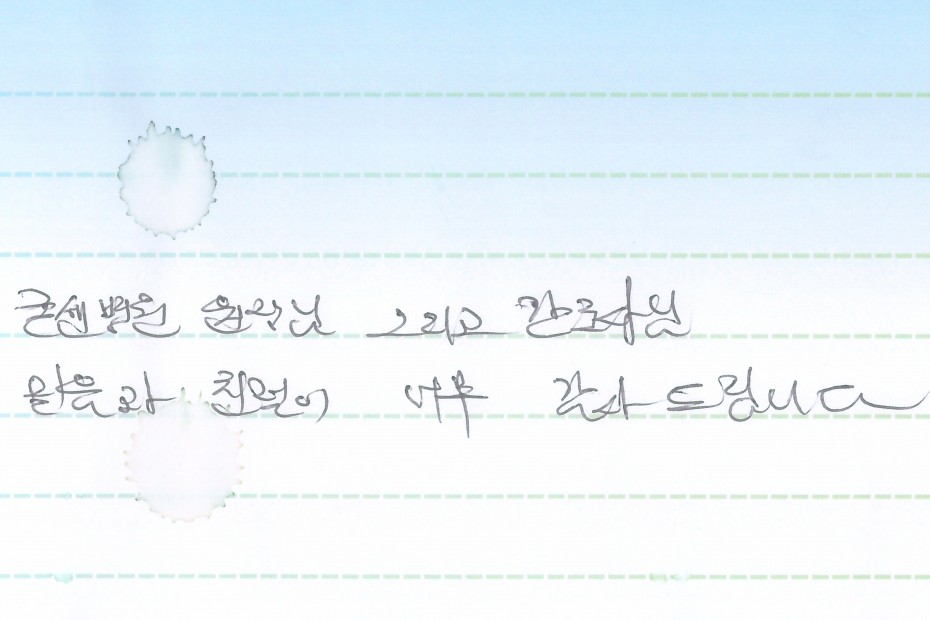 굳센병원 원장님 그리고 간호사님
맑음과 친절이 너무 감사 드립니다